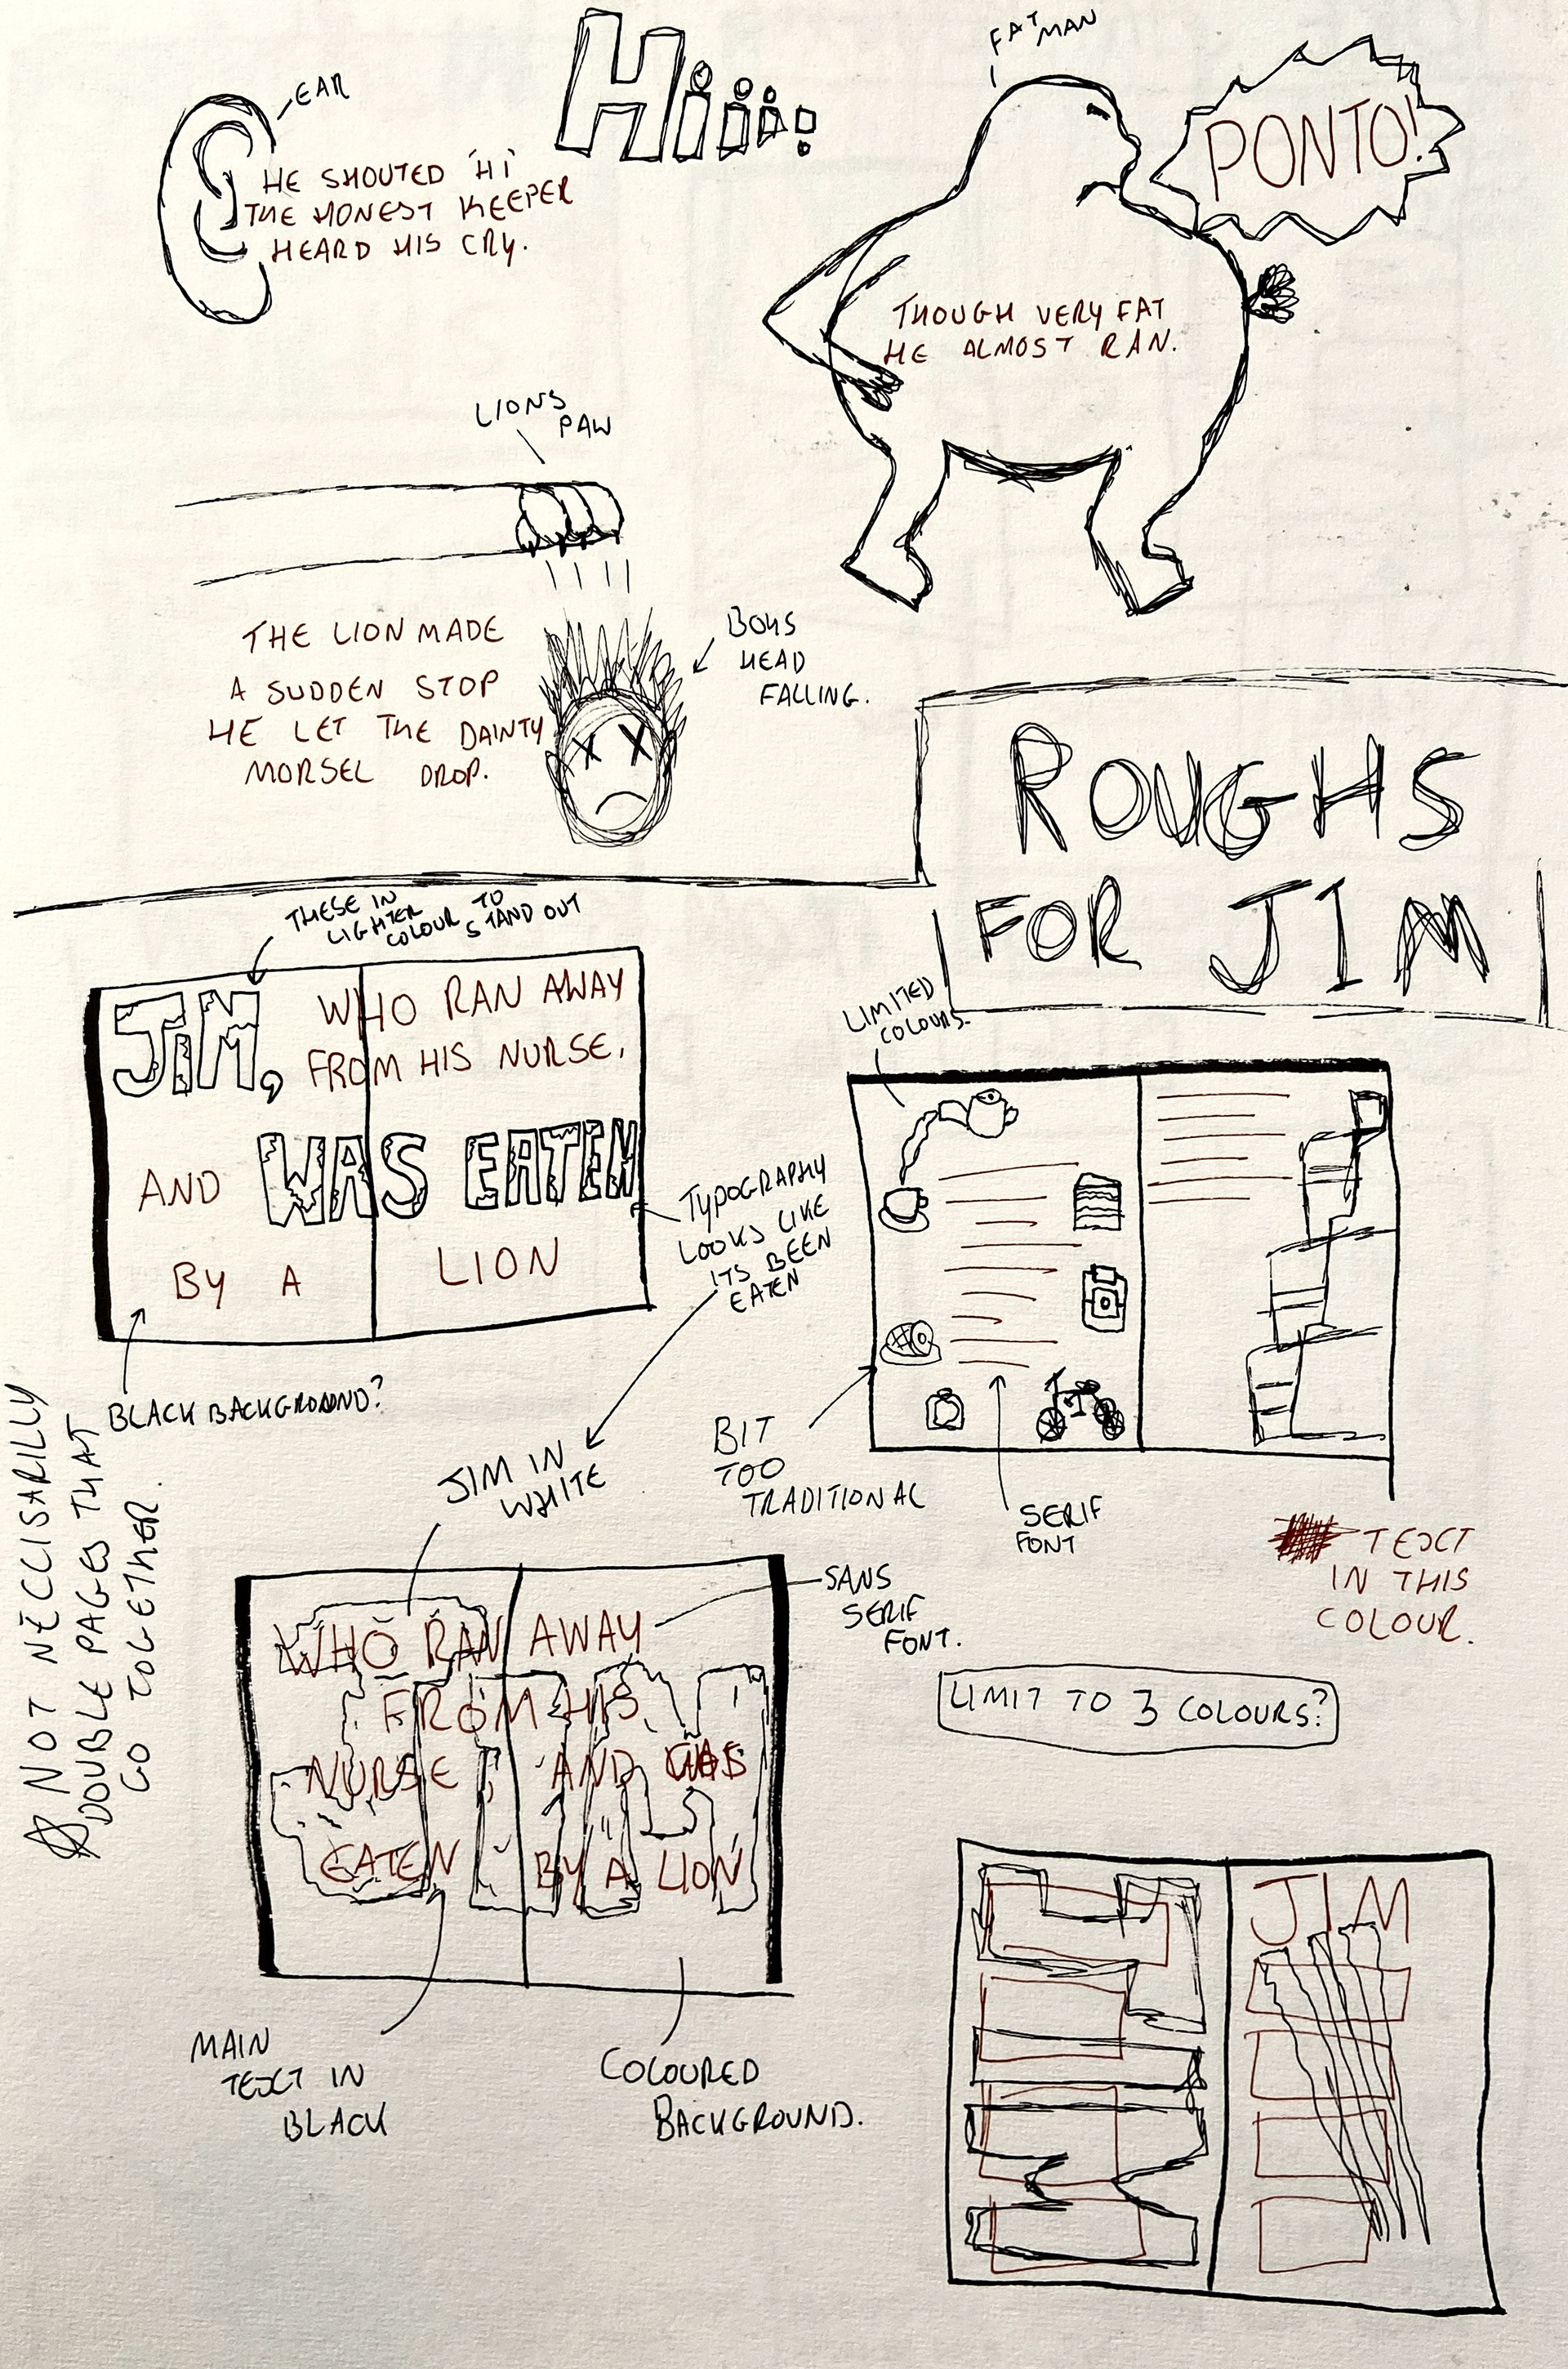 FAT MAN
Hiiii!
EAR
PONTO!
HE SHOUTED 'HI'
THE HONEST KEEPER
HEARD HIS CRY.
THOUGH VERY FAT
HE ALMOST RAN.
LIONS
PAW
THE LION MADE
A SUDDEN STOP
HE LET THE DAINTY
MORSEL DROP.
BOYS
HEAD
FALLING.
ROUGHS
FOR JIM
THESE IN
LIGHTER
COLOUR TO
STAND OUT
JIM, WHO RAN AWAY
FROM HIS NURSE,
AND WAS EATEN
BY A LION
TYPOGRAPHY
LOOKS LIKE
ITS BEEN
EATEN
BLACK BACKGROUND?
LIMITED
COLOURS.
BIT
TOO
TRADITIONAL
SERIF
FONT
TEXT
IN THIS
COLOUR.
NOT NECCISARILLY
DOUBLE PAGES THAT
GO TOGETHER.
JIM IN
WHITE
SANS
SERIF
FONT.
WHO RAN AWAY
FROM HIS
NURSE, AND WAS
EATEN BY A LION
MAIN
TEXT IN
BLACK
COLOURED
BACKGROUND.
LIMIT TO 3 COLOURS?
JIM